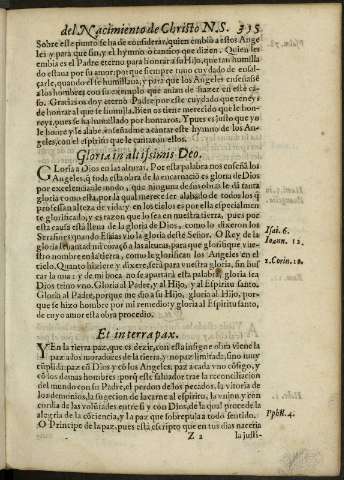 del Nacimiento de Christo N.S. 335
Sobre este punto se ha de considerar, quien embio a estos Ange
les y para que fin, y el hymno o cantico que dizen. Quien les
embia es el Padre eterno para honrar a su Hijo, que tan humilla
do estaua por su amor, porque siempre tuuo cuydado de ensal-
çarle, quando el se humillaua, y para que los Angeles enseñassẽ
a los hombres con su exemplo que auian de hazer en este ca-
so. Gracias os doy eterno Padre por este cuydado que teneys
de honrar al que se humilla. Bien os tiene merecido que le hon-
reys, pues se ha humillado por honraros. Y pues es justo que yo
le honre y le alabe, enseñadme a cantar este hymno de los An-
geles, con el espiritu que le cantaron ellos.
Gloria in altissimis Deo.
GLoria a Dios en las alturas. Por esta palabra nos enseñã los
Angeles, q̃ toda esta obra de la encarnaciõ es gloria de Dios
por excelencia de modo, que ninguna de sus obras le dâ tanta
gloria como esta, por la qual merece ser alabado de todos los q̃
professan alteza de vida; y en los cielos es por ella especialmen-
te glorificado, y es razon que lo sea en nuestra tierra, pues por
esta causa està llena de la gloria de Dios, como lo dixeron los
Serafines quando Esaias vio la gloria deste Señor. O Rey de la
gloria leuantad mi coraçõ a las alturas, para que glorifique vue-
stro nombre en la tierra, como le glorifican los Angeles en el
cielo. Quanto hiziere y dixere, serà para vuestra gloria, sin bus
car la mia; y de mi boca no se apartarà esta palabra, gloria sea
Dios trino y vno. Gloria al Padre, y al Hijo, y al Espiritu santo.
Gloria al Padre, porque me dio a su Hijo, gloria al Hijo, por-
que se hizo hombre por mi remedio; y gloria al Espiritu santo,
de cuyo amor esta obra procedio.
Isai. 6.
Ioann. 12.
1. Corin. 10.
Et in terra pax.
Y En la tierra paz, que es dezir, con esta insigne obra viene la
paz a los moradores de la tierra, y no paz limitada, sino muy
cũplida: paz cõ Dios y cõ los Angeles, paz a cada vno cõsigo, y
cõ los demas hombres: porq̃ este saluador trae la reconciliacion
del mundo con su Padre, el perdon de los pecados, la vitoria de
los demonios, la sugecion de la carne al espiritu, la vnion y con-
cordia de las volũtades entre si y con Dios, de la qual procede la
alegria de la cõciencia, y la paz que sobrepuja a todo sentido.
O Principe de la paz, pues està escripto que en tus dias naceria
Pphil. 4.
Z 2 la justi-